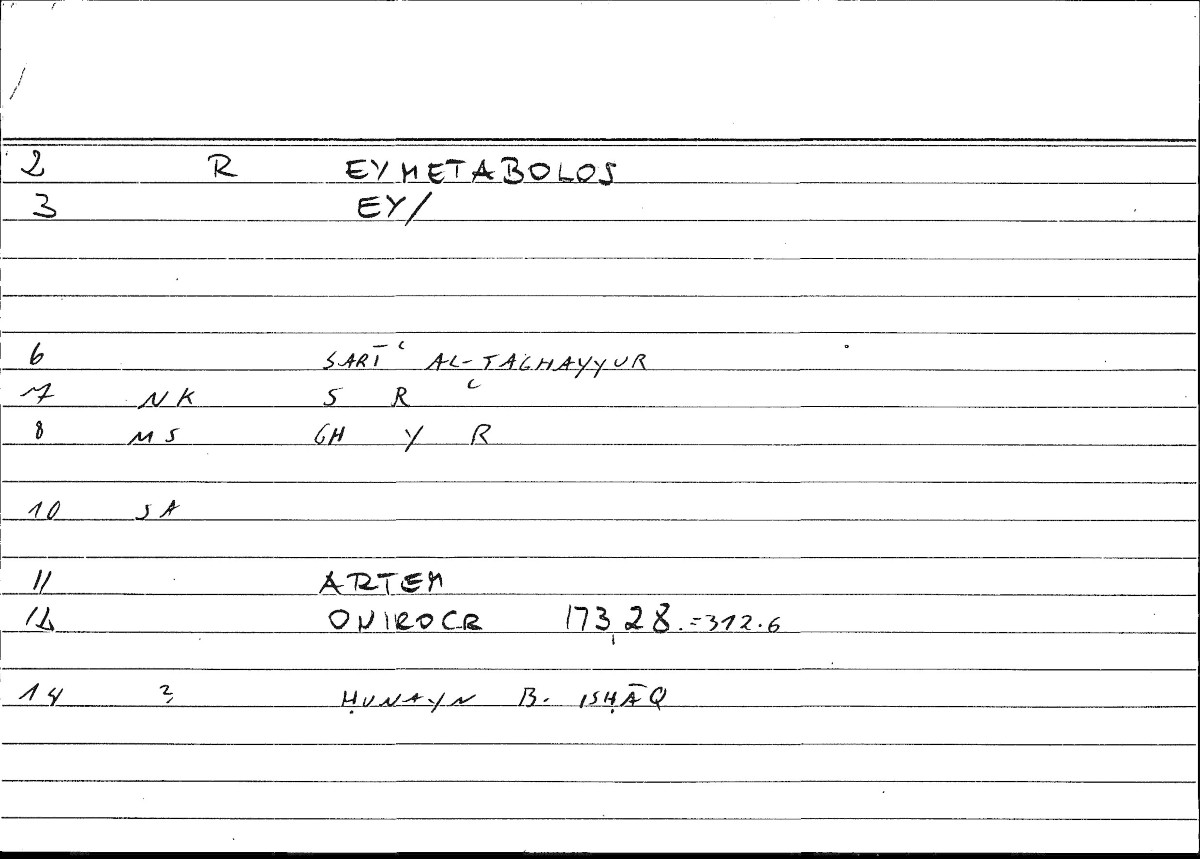 2 R EYMETABOLOS
3 EY/
6 SARĪʿ AL-TAGHAYYUR
7 NK S R ʿ
8 MS GH Y R
10 SA
11 ARTEM
12 ONIROCR 173,28.=312.6
14 ? ḤUNAYN B. ISḤĀQ